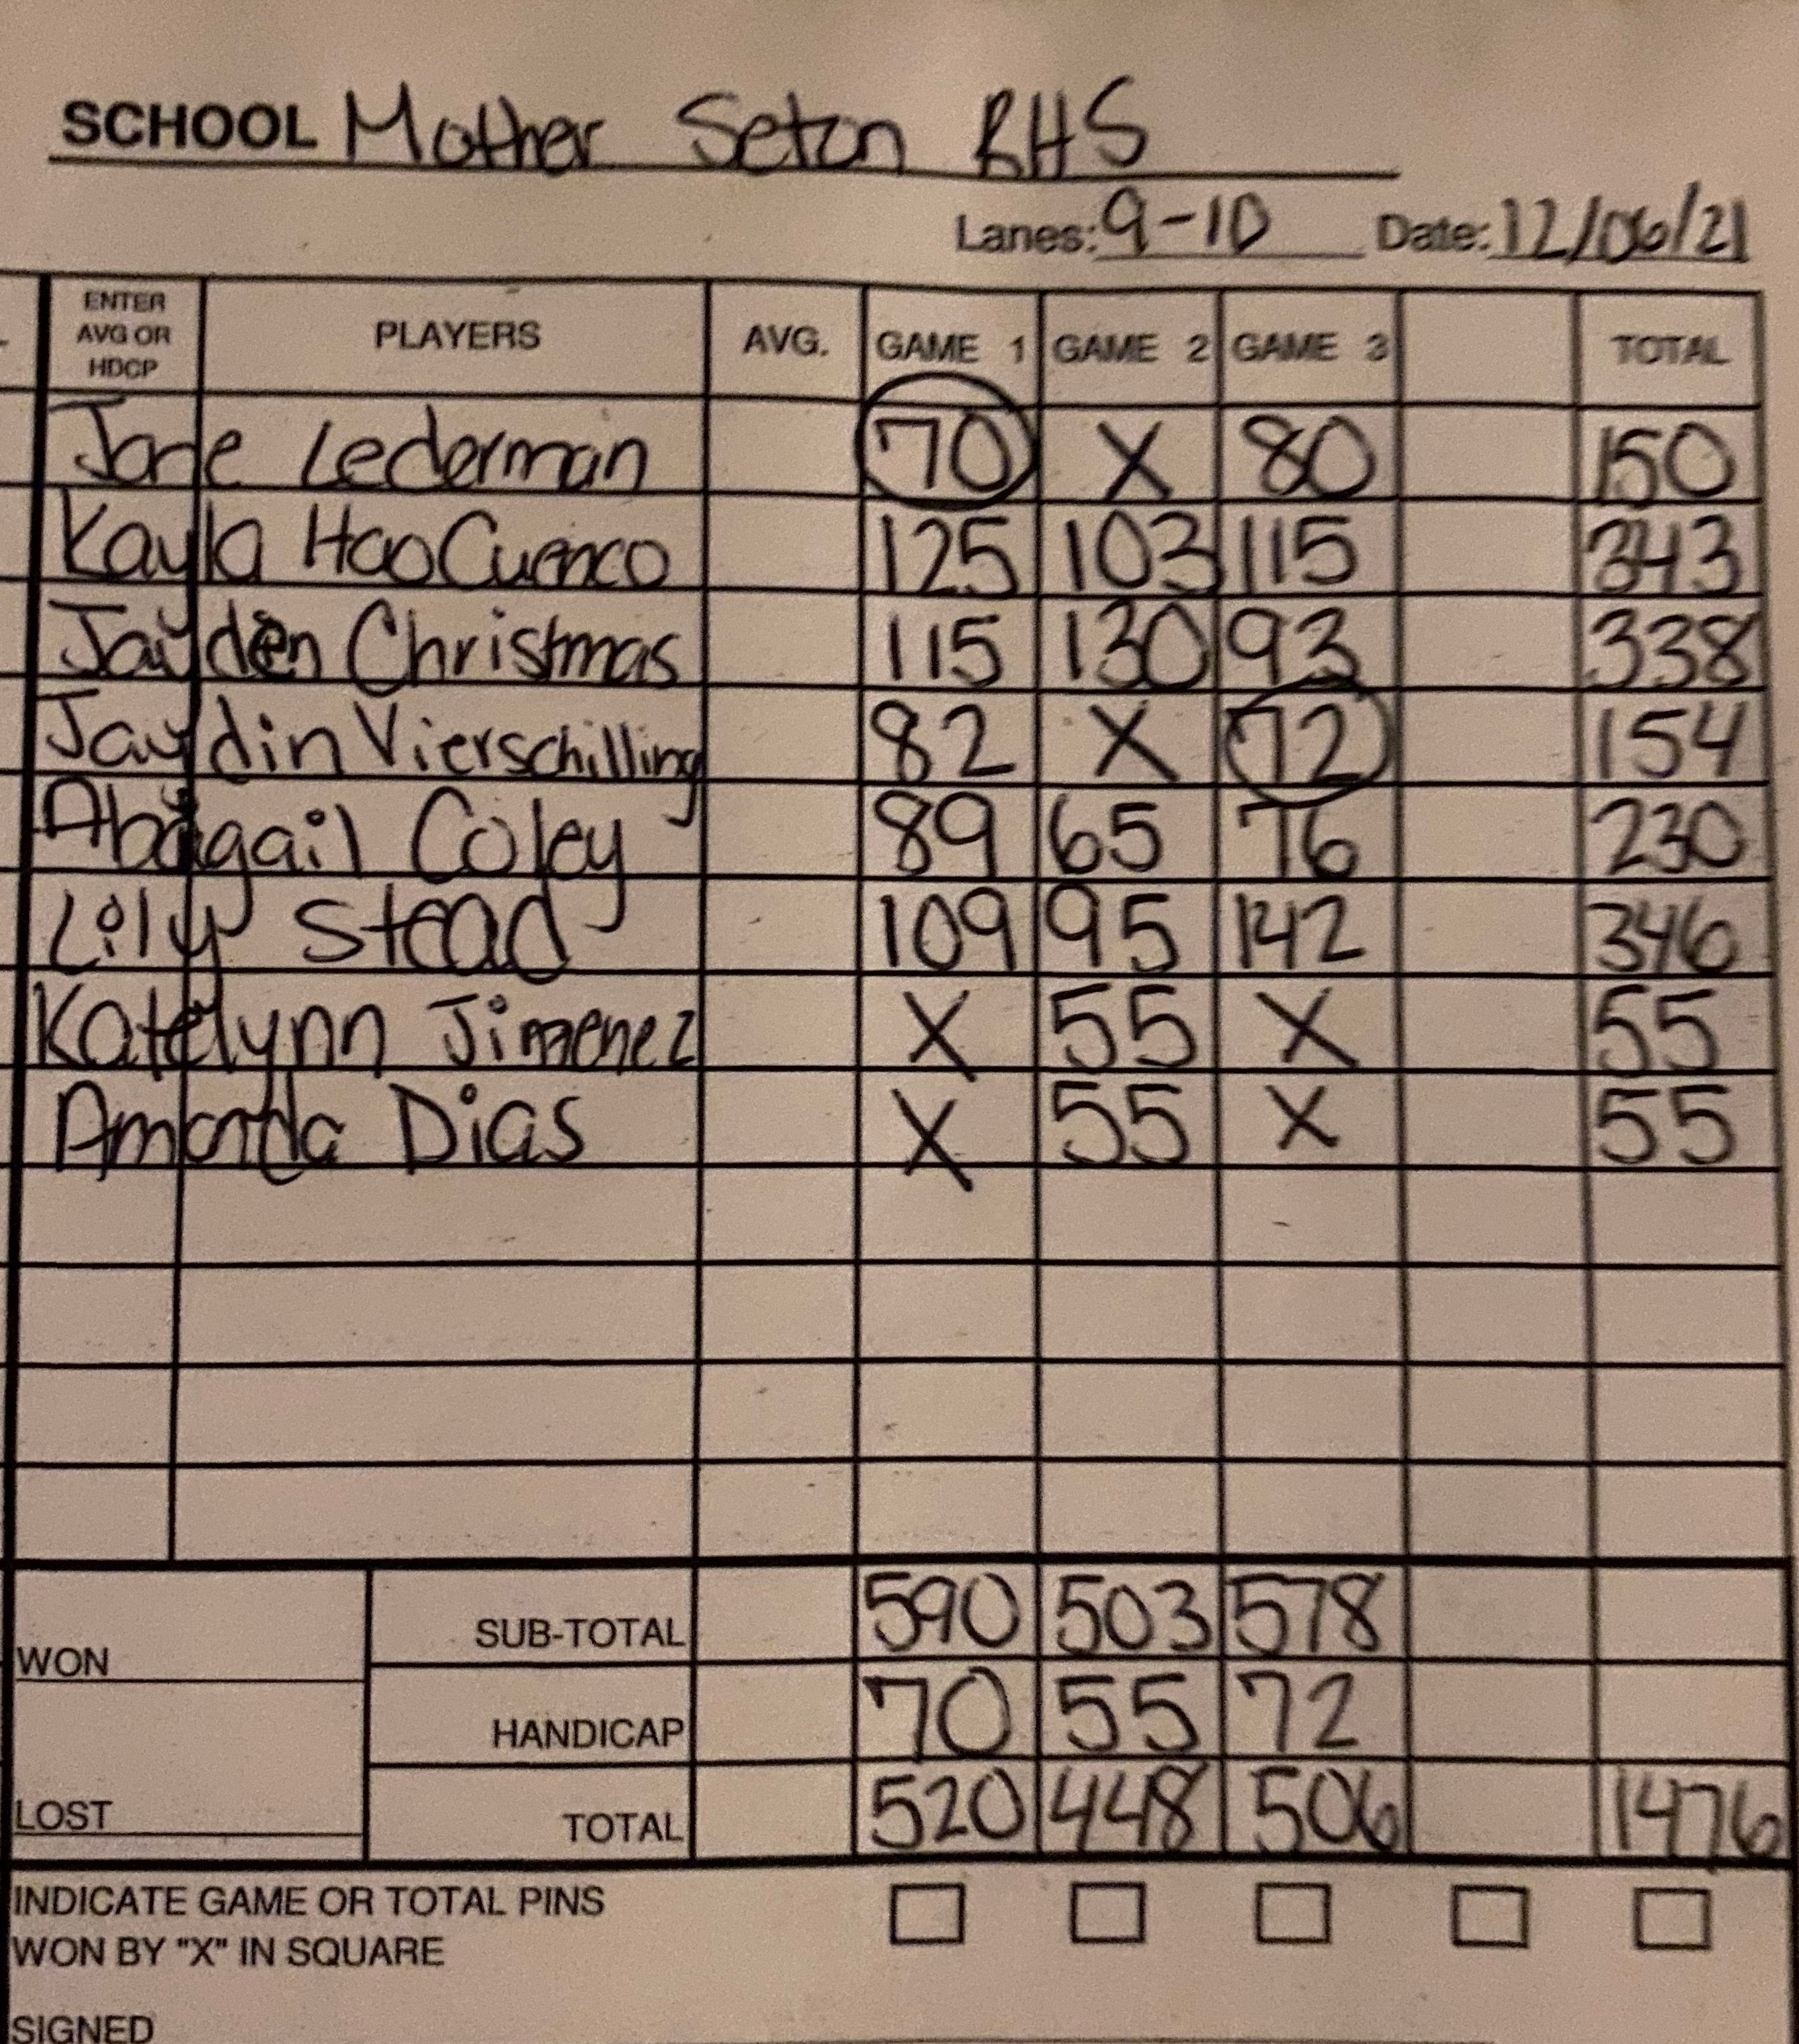 SCHOOL Mother Seton RHS
Lanes: 9-10 Date: 12/06/21
ENTER AVG OR HDCP PLAYERS AVG. GAME 1 GAME 2 GAME 3 TOTAL
Jane Lederman 70 X 80 150
Kayla HaoCuenco 125 103 115 343
Jayden Christmas 115 130 93 338
Jaydin Vierschilling 82 X 72 154
Abigail Coley 89 65 76 230
Lily Stead 109 95 142 346
Katelynn Jimenez X 55 X 55
Amanda Dias X 55 X 55
SUB-TOTAL 590 503 578
WON
HANDICAP 70 55 72
LOST
TOTAL 520 448 506 1476
INDICATE GAME OR TOTAL PINS
WON BY "X" IN SQUARE
SIGNED